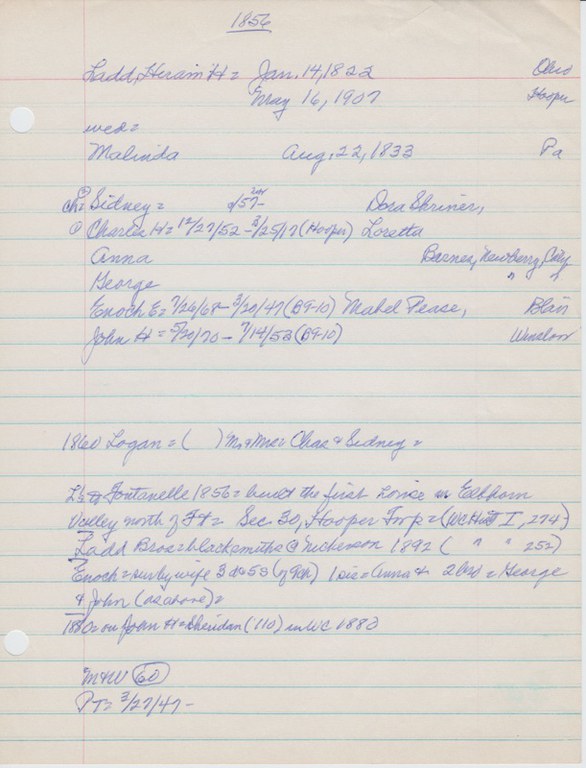 1856
Ladd, Hiram H = Jan. 14, 1822 Ohio
May 16, 1907 Hooper
wed =
Malinda Aug. 22, 1833 Pa
ch = Sidney = 57- Dora Shriner,
Charles H = 12/27/52 - 3/25/17 (Hooper) Loretta
Anna Barnes, Newberry, City
George " "
Enoch E = 7/26/68 - 3/20/47 (B9-10) Mabel Pease, Blair
John H = 5/20/70 - 7/14/53 (B9-10) Winslow
1860 Logan = ( ) Mr & Mrs = Chas & Sidney =
Fontanelle 1856 = built the first house in Elkhorn
Valley north of Ft = Sec. 30, Hooper Twp = (WC Hist I, 274)
Ladd Bros = blacksmiths @ Nickerson 1892 ( " " 252)
Enoch = surv by wife 3 da 5 s 1 sis = Anna & 2 bro = George
& John (as above) =
1880 = on John H = Sheridan (110) in WC 1880
M & W 60
PT = 3/27/47 -